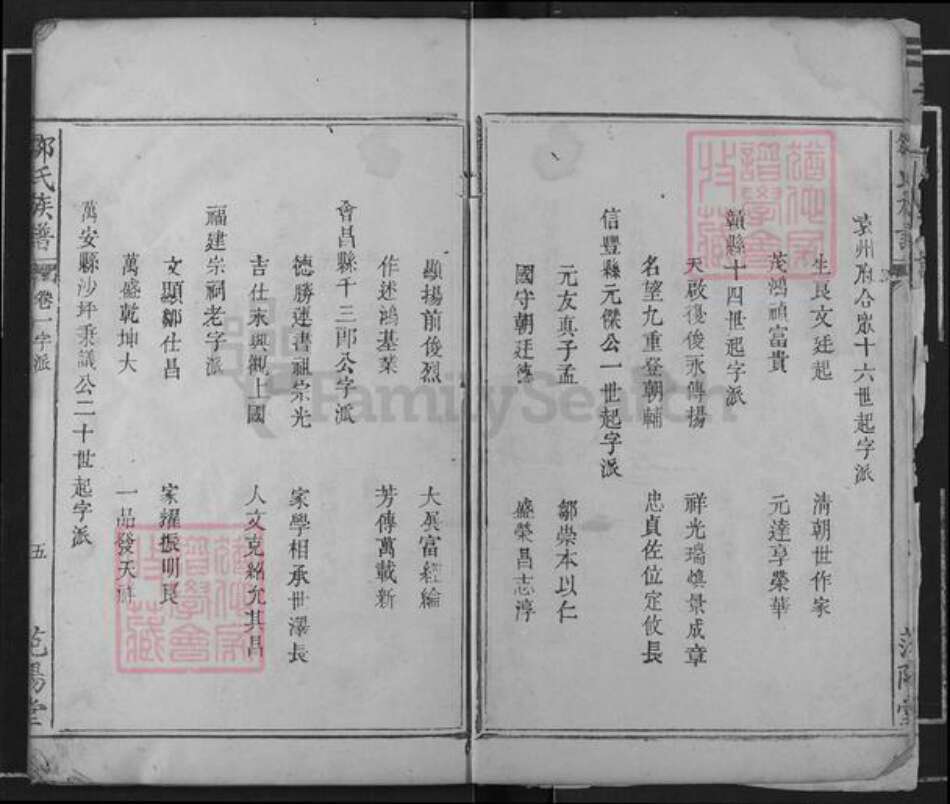 袁州府合眾十六世起字派
生良文廷起　清朝世作家
茂鴻禎富貴　元達享榮華
贛縣十四世起字派
天啟復後永傳揚　祥光瑞慎景成章
名望九重登朝輔　忠貞佐位定攸長
信豐縣元傑公一世起字派
元友真子孟　鄒崇本以仁
國守朝廷德　盛榮昌志淳
顯揚前俊烈　大展富經綸
作述鴻基業　芳傳萬載新
會昌縣千三郎公字派
德勝運書祖宗光　家學相承世澤長
吉仕永興觀上國　人文克紹允其昌
福建宗祠老字派
文顯鄒仕昌　家耀振明良
萬盛乾坤大　一品發天祥
萬安縣沙坪秉議公二十世起字派
鄒氏族譜　卷一字派　五　范陽堂
FamilySearch